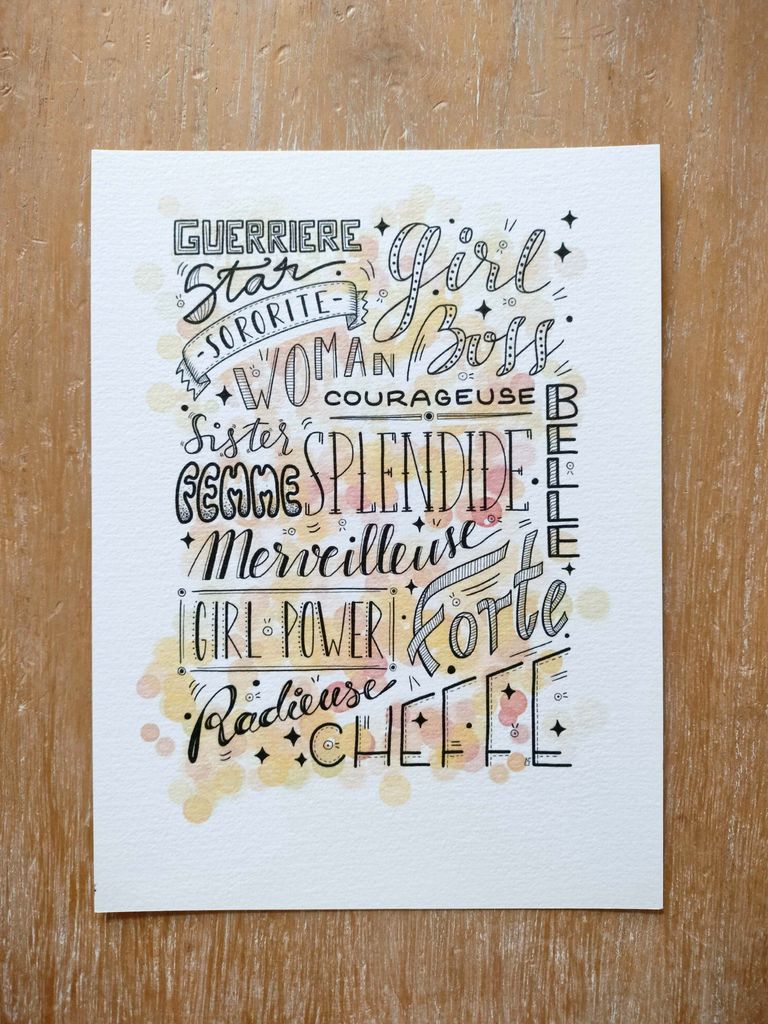 GUERRIERE
Star
Girl
Boss
-SORORITE-
WOMAN
COURAGEUSE
BELLE
Sister
FEMME
SPLENDIDE
Merveilleuse
Forte
GIRL POWER
Radieuse
CHEFFE